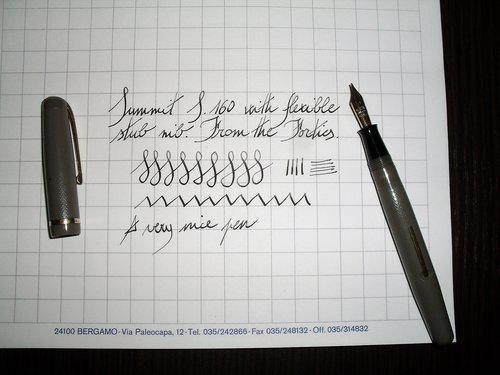 Summit S. 160 with flexible
stub nib. From the Forties.
A very nice pen
24100 BERGAMO - Via Paleocapa, 12 - Tel. 035/242866 - Fax 035/248132 - Off. 035/314832